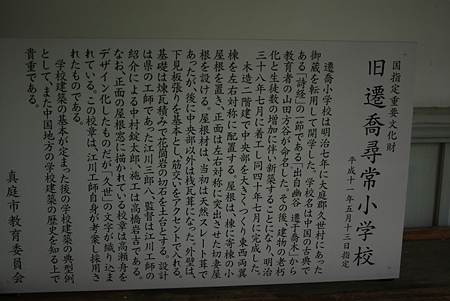 国指定重要文化財
旧遷喬尋常小学校
平成十一年五月十三日指定
遷喬小学校は明治七年に大庭郡久世村にあった
御蔵を転用して開学した。学校名は中国の古典で
ある「詩経」の一節である「出自幽谷 遷于喬木」から
教育者の山田方谷が命名した。その後、建物の老朽
化と生徒数の増加に伴い新築することになり、明治
三十八年七月に着工し同四十年七月に完成した。
木造二階建で中央部を大きくつくり東西両翼
棟を左右対称に配置する。屋根は、東に寄棟の小
屋根を置き、正面は左右対称に突出させた切妻屋
根を設ける。屋根材は、当初は天然スレート葺で
あったが、後に中央部以外は桟瓦葺になった。外壁は、
下見板張りを基本とし筋交いをアクセントで入れる。
基礎は煉瓦積みで花崗岩の切石を土台とする。設計
は県の工師であった江川三郎八、監督は江川工師の
紹介による中村錠太郎、施工は高橋岩吉である。
なお、正面の屋根窓に描かれている校章は高瀬舟を
デザイン化したものだが「久世」の文字が織り込ま
れている。この校章は、江川工師自身が考案し採用さ
れたものである。
学校建築の基本が定まった後の学校建築の典型例
として、また中国地方の学校建築の歴史を知る上で
貴重である。
真庭市教育委員会